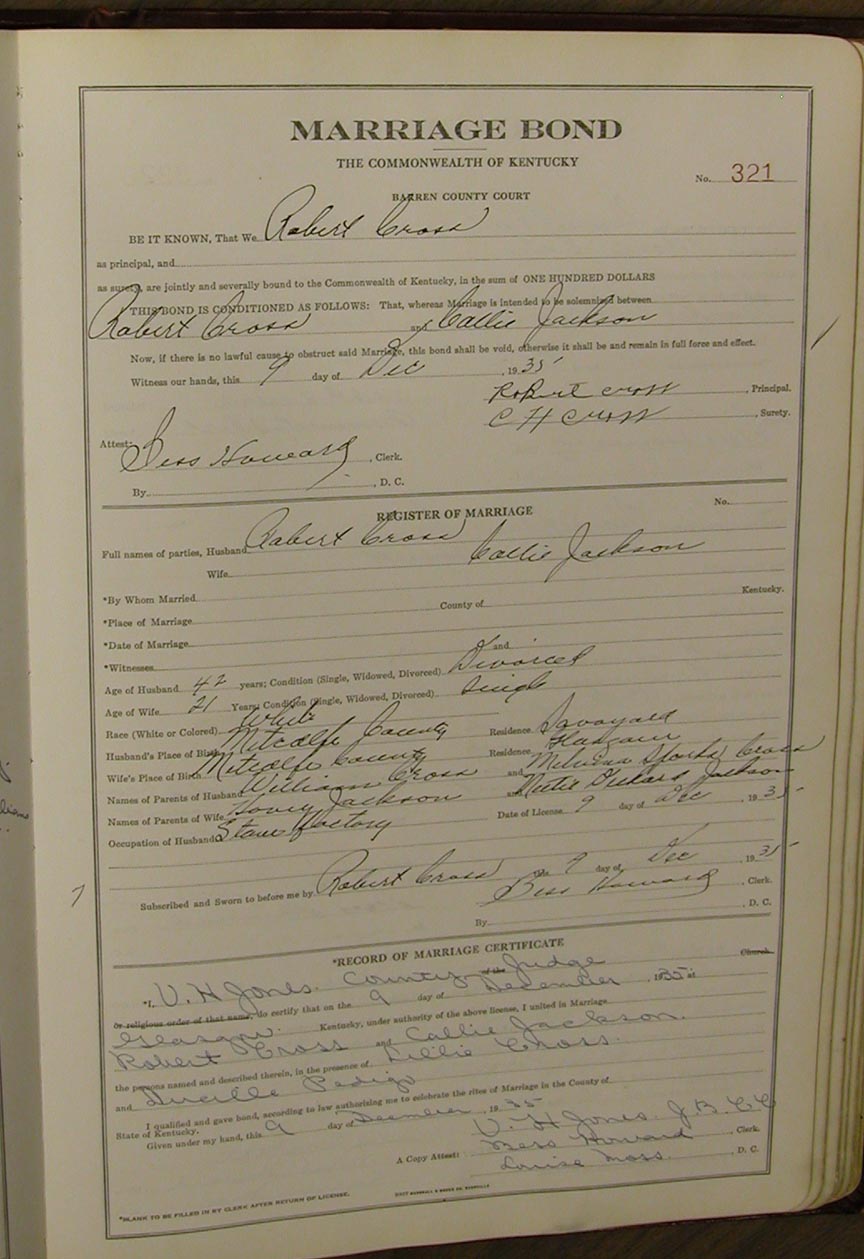 MARRIAGE BOND
THE COMMONWEALTH OF KENTUCKY
No. 321
BARREN COUNTY COURT
BE IT KNOWN, That We Robert Cross
as principal, and
as surety, are jointly and severally bound to the Commonwealth of Kentucky, in the sum of ONE HUNDRED DOLLARS
THIS BOND IS CONDITIONED AS FOLLOWS: That, whereas Marriage is intended to be solemnized between
Robert Cross and Callie Jackson
Now, if there is no lawful cause to obstruct said Marriage, this bond shall be void, otherwise it shall be and remain in full force and effect.
Witness our hands, this 9 day of Dec , 1935
Robert Cross , Principal.
C H Cross , Surety.
Attest: Bess Howard , Clerk.
By , D. C.
REGISTER OF MARRIAGE
No.
Full names of parties, Husband Robert Cross
Wife Callie Jackson
*By Whom Married
*Place of Marriage County of Kentucky.
*Date of Marriage
*Witnesses and
Age of Husband 42 years; Condition (Single, Widowed, Divorced) Divorced
Age of Wife 21 Years; Condition (Single, Widowed, Divorced) Single
Race (White or Colored) White
Husband's Place of Birth Metcalfe County Residence Savoyard
Wife's Place of Birth Metcalfe County Residence Glasgow
Names of Parents of Husband William Cross and Sparks Cross
Names of Parents of Wife Jackson and Jackson
Occupation of Husband Stave Factory Date of License 9 day of Dec , 1935
Subscribed and Sworn to before me by Robert Cross this 9 day of Dec , 1935
Bess Howard , Clerk.
By , D. C.
*RECORD OF MARRIAGE CERTIFICATE
*I, V. H Jones. County of the Judge Church
or religious order of that name, do certify that on the 9 day of December , 1935 at
Glasgow. Kentucky, under authority of the above license, I united in Marriage
Robert Cross and Callie Jackson.
the persons named and described therein, in the presence of Lillie Cross.
and Lucille Pedigo
I qualified and gave bond, according to law authorizing me to celebrate the rites of Marriage in the County of
State of Kentucky.
Given under my hand, this 9 day of December , 1935
V. H Jones. J. B. C. C
A Copy Attest: Bess Howard Clerk.
Louise Moss. , D. C.
*BLANK TO BE FILLED IN BY CLERK AFTER RETURN OF LICENSE.